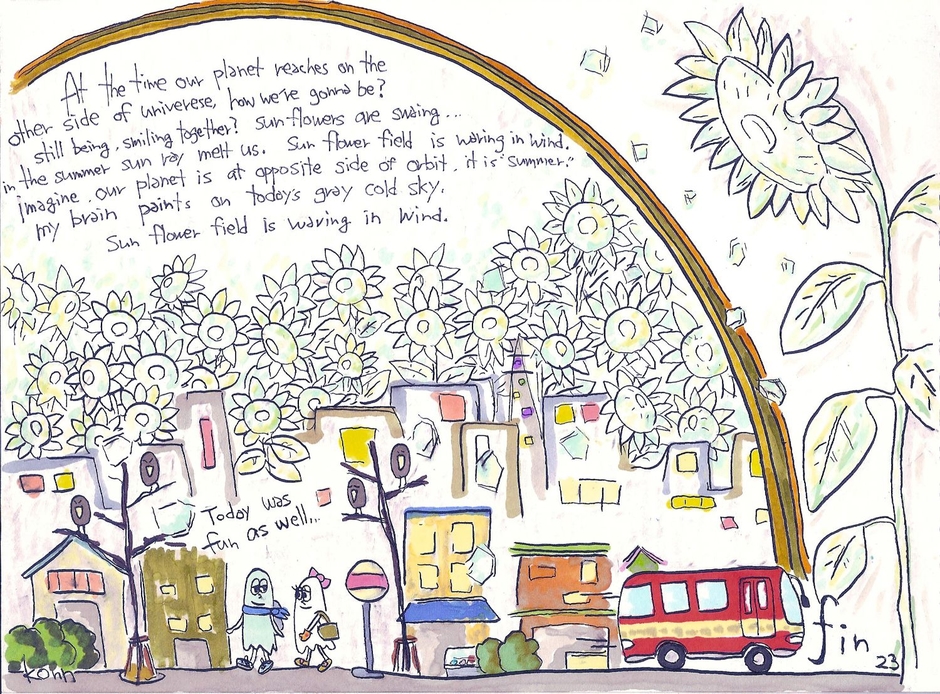 At the time our planet reaches on the
other side of universe, how we're gonna be?
still being, smiling together? sunflowers are swaing...
in the summer sun ray melt us. Sun flower field is waving in wind.
imagine, our planet is at opposite side of orbit, it is "summer,"
my brain paints on today's gray cold sky.
Sun flower field is waving in wind.
Today was
fun as well...
fin
23
Kohh